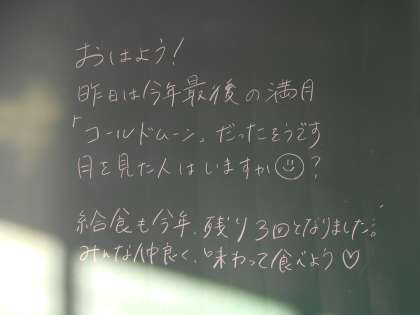 おはよう!
昨日は今年最後の満月
「コールドムーン」だったそうです
月を見た人はいますか☺?
給食も今年、残り3回となりました。
みんな仲良く、味わって食べよう♡